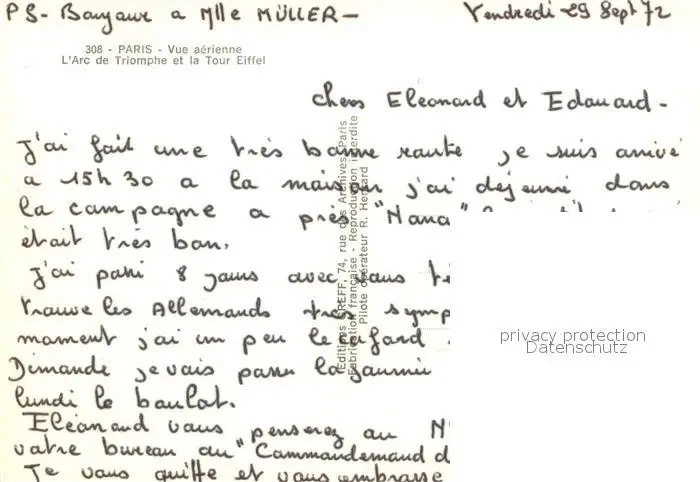 PS- Bonjour a Mlle MÜLLER-
Vendredi 29 Sept 72
308 - PARIS - Vue aérienne
L'Arc de Triomphe et la Tour Eiffel
chers Eléonard et Edouard-
J'ai fait une très bonne route je suis arrivé
a 15h30 a la maison j'ai déjeuné dans
la campagne a près "Nancy"
était très bon.
J'ai passé 8 jours avec vous
trouve les Allemands très
moment j'ai un peu le cafard
Dimanche je vais passer la journée
lundi le boulot.
Eléonard vous penserez au
votre bureau au "Commandemand
Je vous quitte et vous embrasse
Editions GREFF, 74, rue des Archives, Paris
Fabrication française - Reproduction interdite
Pilote opérateur R. Henrard
privacy protection
Datenschutz